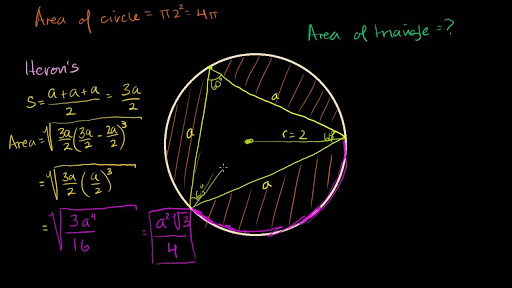 Area of circle = π2² = 4π
Area of triangle = ?
Heron's
S = (a + a + a)/2 = 3a/2
Area = √(3a/2 (3a/2 - 2a/2)³)
= √(3a/2 (a/2)³)
= √(3a⁴/16) = a²√3/4
60°
a
a
r = 2
60°
a
60°